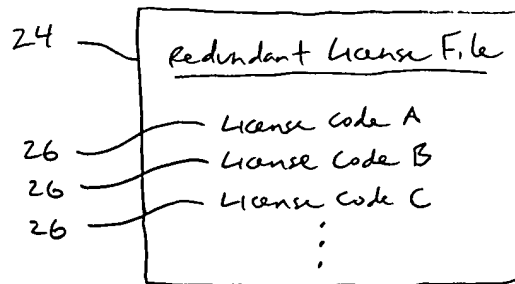 24
Redundant License File
License Code A
26
License Code B
26
License Code C
26